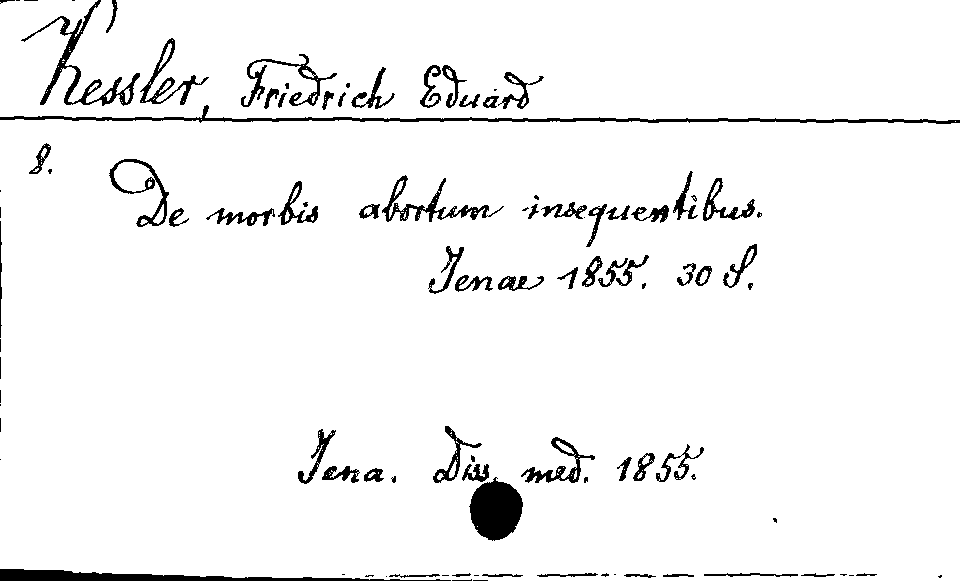 Kessler, Friedrich Eduard
8.
De morbis abortum insequentibus.
Jenae 1855. 30 S.
Jena. Diss. med. 1855.